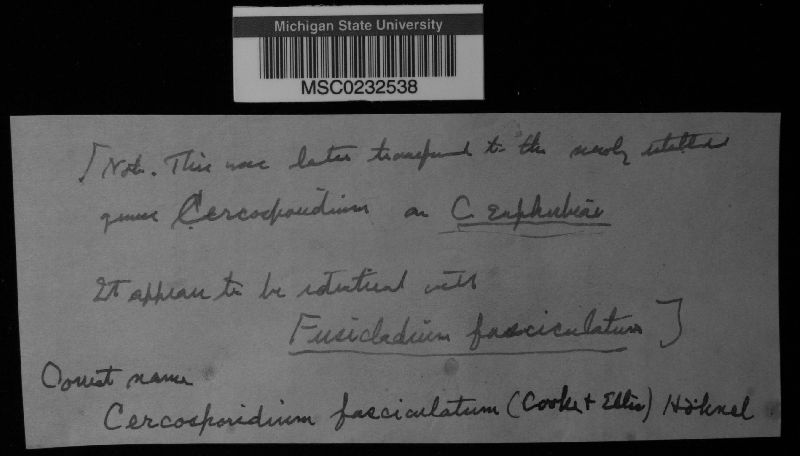 Michigan State University
MSC0232538
[Note. This was later transferred to the newly established
genus Cercosporidium as C. Euphorbiae
It appears to be identical with
Fusicladium fasciculatum]
Correct name
Cercosporidium fasciculatum (Cooke + Ellis) Höhnel